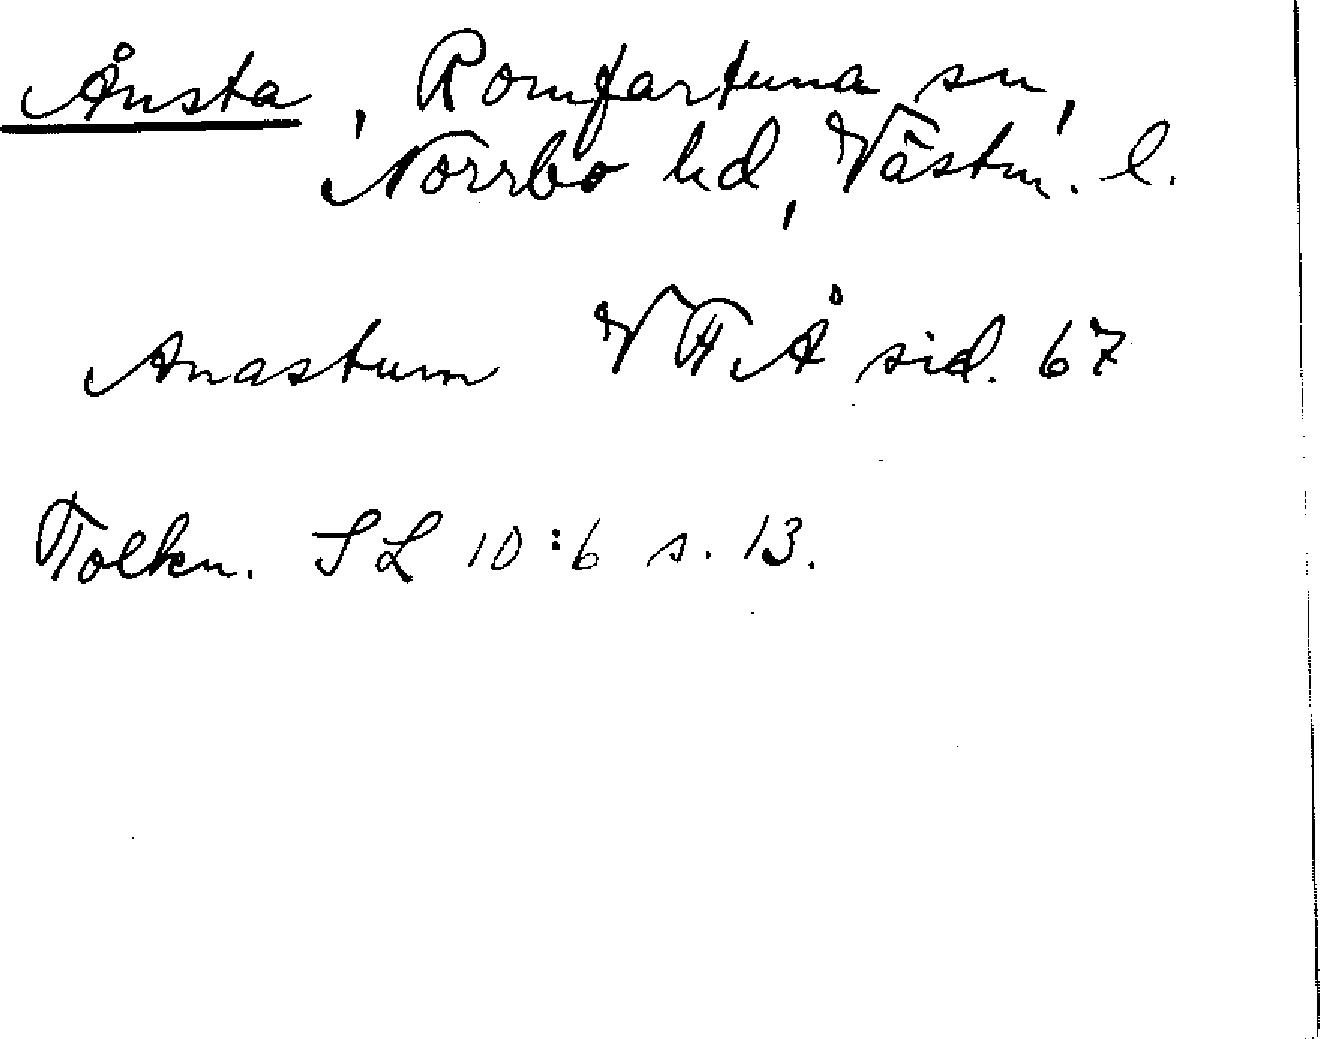 Ånsta, Romfartuna sn,
Norrbo hd, Västm. l.
Anastum VFÅ sid. 67
Tolkn. SL 10:6 s. 13.